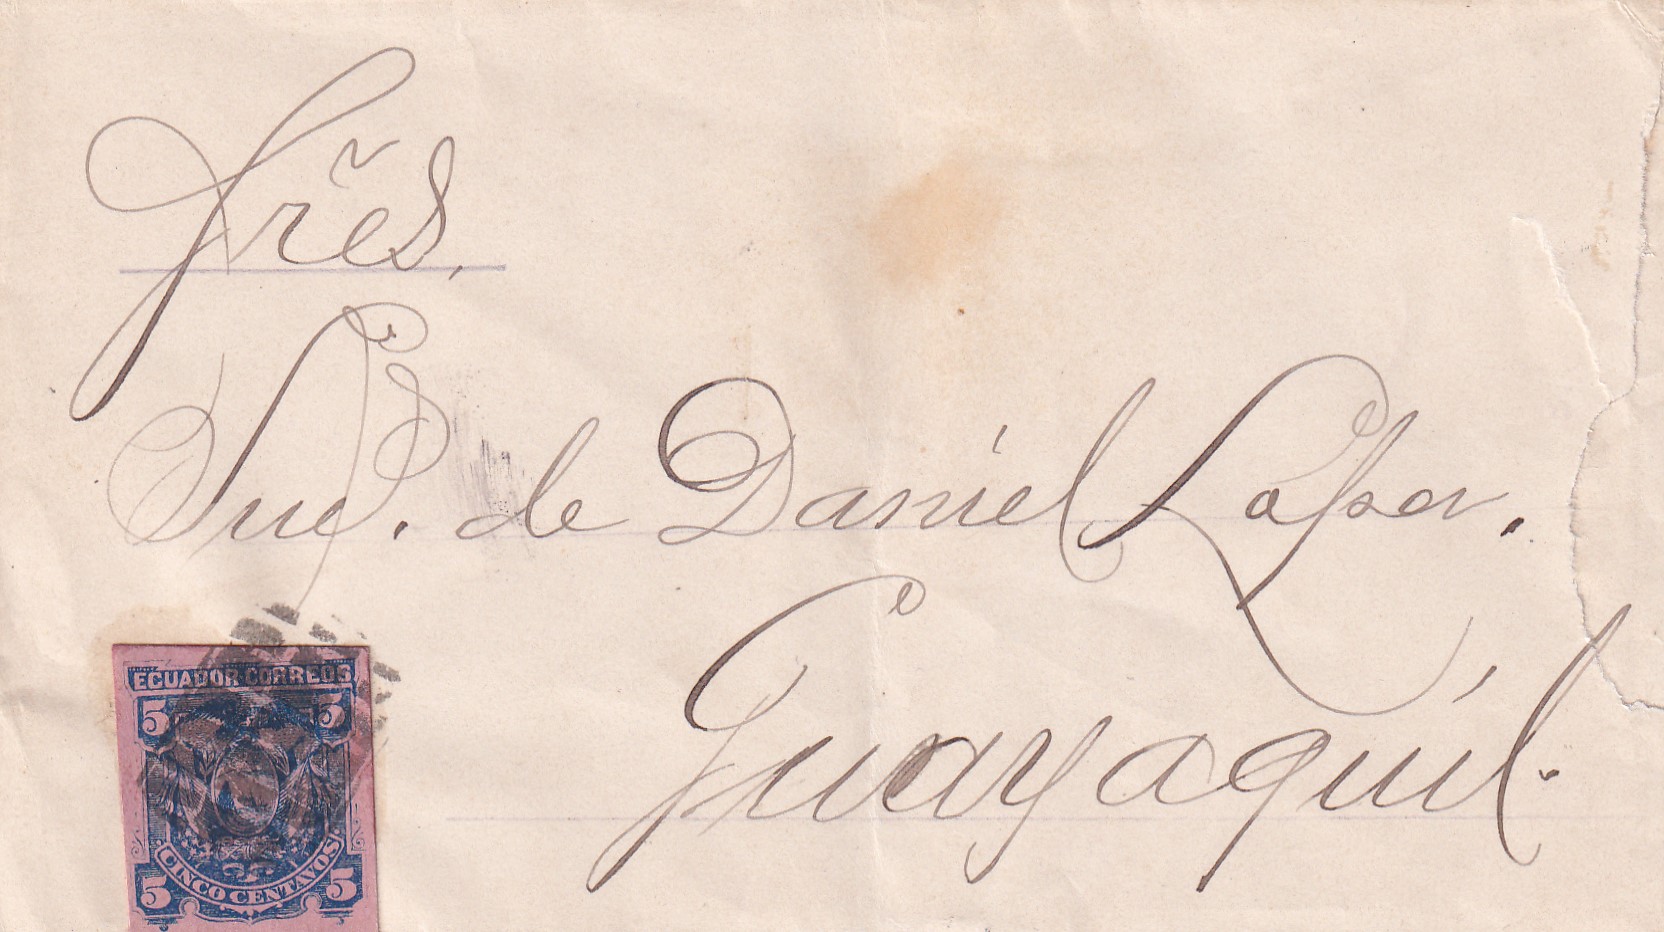 Sres.
Suc. de Daniel López.
Guayaquil.
ECUADOR CORREOS
5 5
CINCO CENTAVOS
5 5